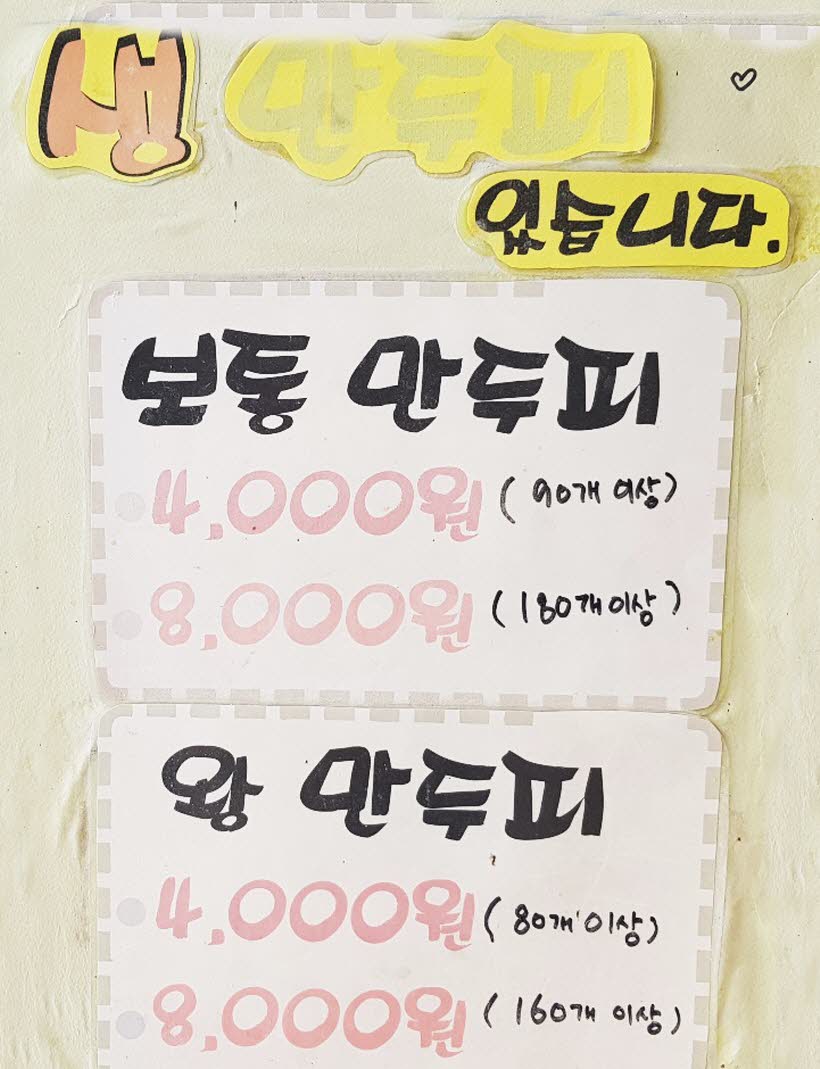 생 만두피 ♡
있습니다.
보통 만두피
4,000원 (90개 이상)
8,000원 (180개 이상)
왕 만두피
4,000원 (80개 이상)
8,000원 (160개 이상)